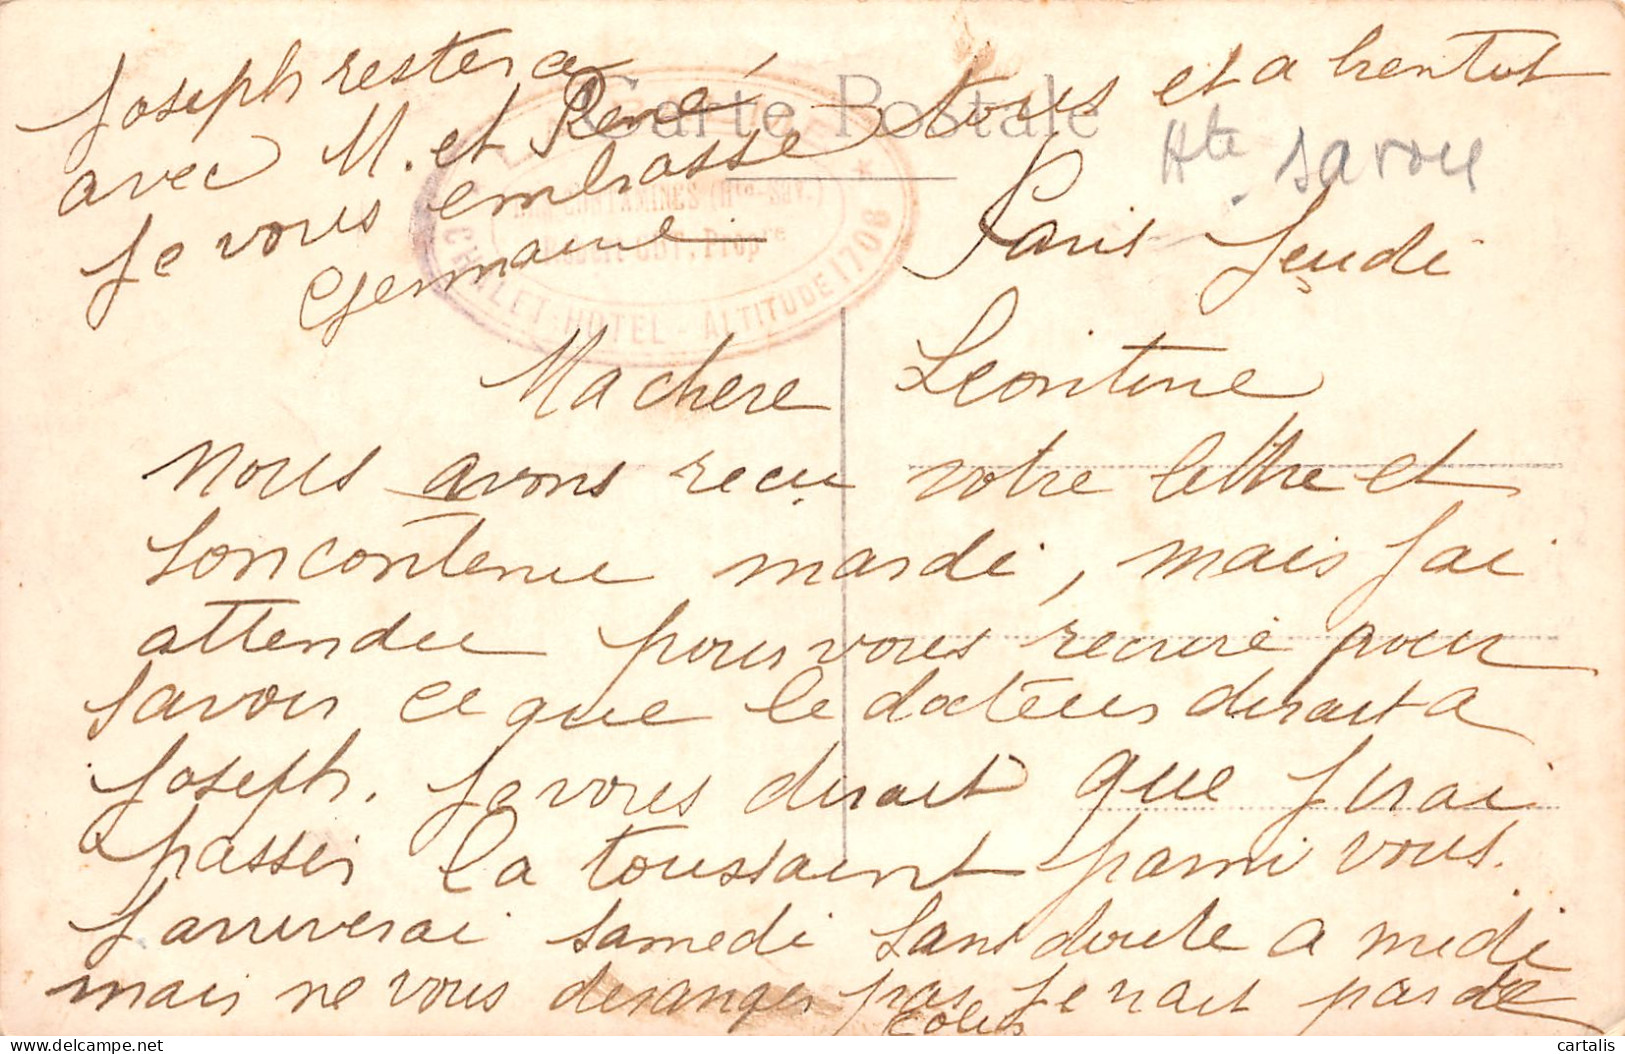 Joseph restera
avec M. et René
je vous embrasse tous et a bientot
Germaine
Carte Postale
Hte Savoie
LES CONTAMINES (Hte-Sav.)
Propre
CHALET-HOTEL - ALTITUDE 1708
Paris Jeudi
Ma chere Leontine
nous avons reçu votre lettre et
son contenu mardi, mais j ai
attendu pour vous recrire pour
savoir ce que le docteur dirait a
Joseph. Je vous dirait que j irai
passer la toussaint parmi vous.
J arriverai samedi sans doute a midi
mais ne vous deranger pas je n ait pas de
colis
cartalis
delcampe.net